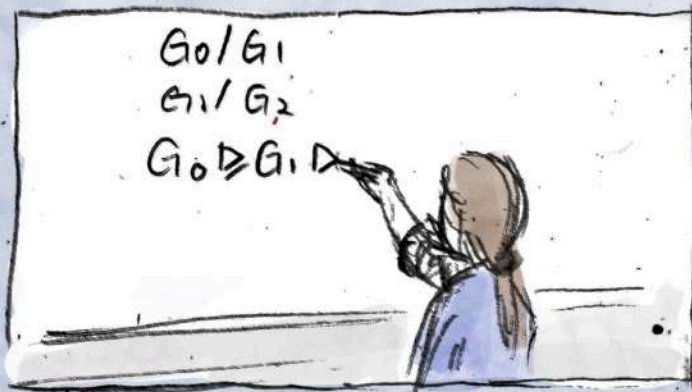 G₀/G₁
G₁/G₂
G₀ ⊵ G₁ ▷